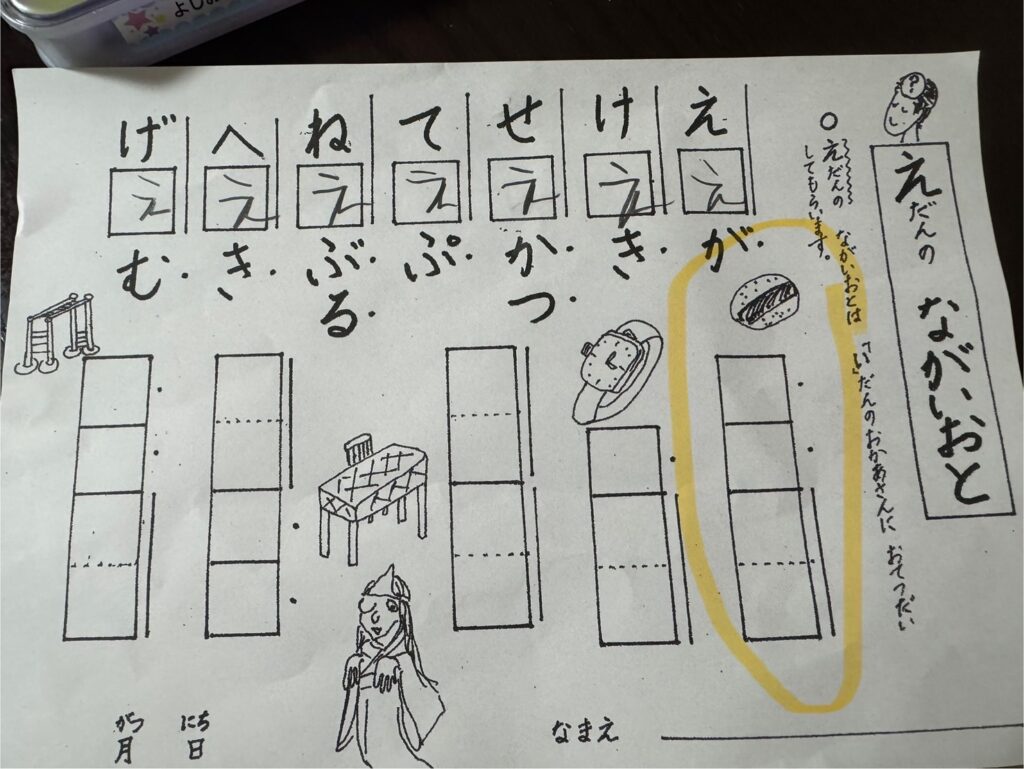 ?
えだんの ながいおと
○ えだんの ながいおとは 「い」だんのおかあさんに おてつだい
してもらいます。
ええが
けえき
せえかつ
てえぷ
ねえぶる
へえき
げえむ
なまえ
にち
日
がつ
月